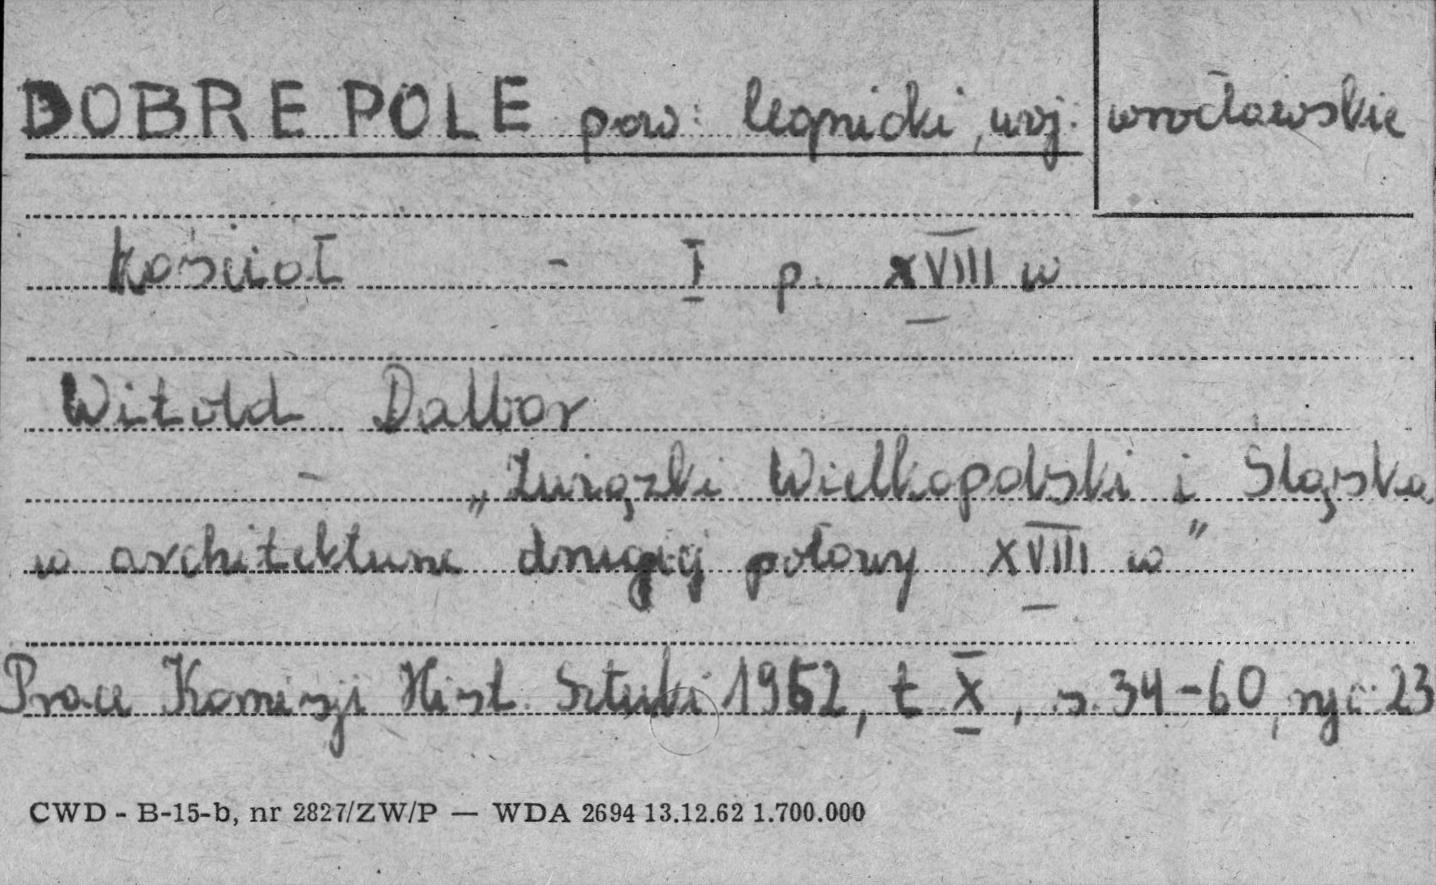 DOBRE POLE pow. legnicki, woj. wrocławskie
Kościół - I p. XVIII w
Witold Dalbor
- „Związki Wielkopolski i Śląska
w architekturze drugiej połowy XVIII w"
Prace Komisji Hist. Sztuki 1952, t X, s. 34-60, ryc 23
CWD - B-15-b, nr 2827/ZW/P — WDA 2694 13.12.62 1.700.000